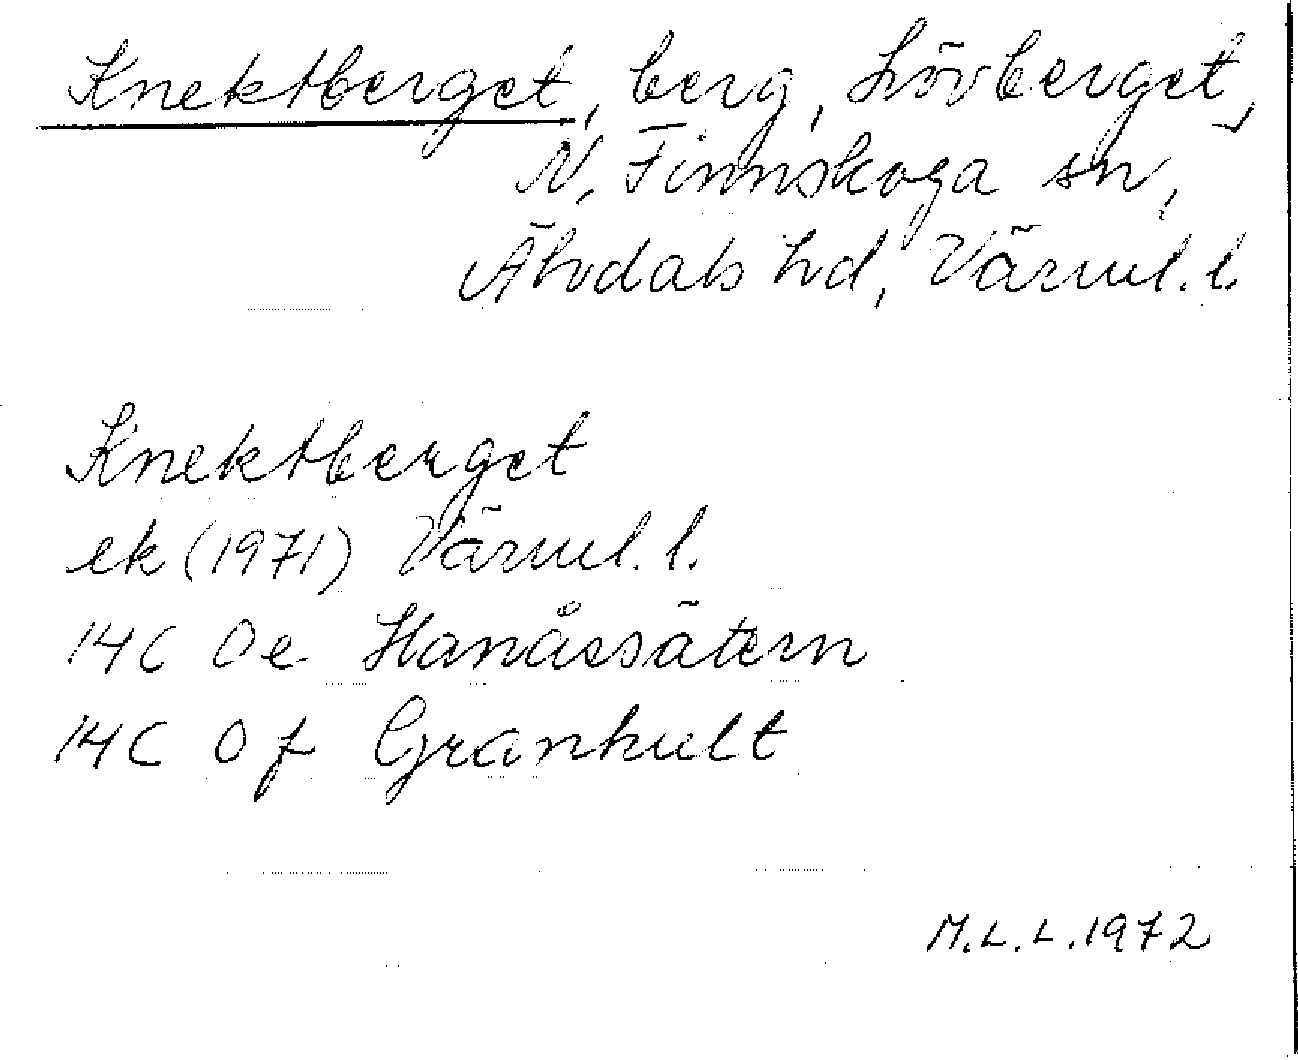 Knektberget, berg, Lövberget,
N. Finnskoga sn,
Älvdals hd, Värml. l.
Knektberget
ek (1971) Värml. l.
14C 0e Hanåssätern
14C 0f Granhult
M.L.L. 1972